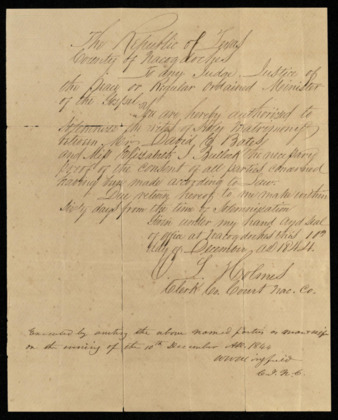 The Republic of Texas
County of Nacogdoches
To any Judge, Justice of
the Peace or Regular Ordained Minister
of the Gospel
You are hereby authorised to
Solemnize the rites of Holy Matrimony
between Mr. David G. Bates
and Miss Elizabeth J. Bullock the necessary
Proof of the Consent of all parties concerned
having been made according to Law.
Due return hereof to me make within
Sixty days from the time of Solemnization
Given under my hand and Seal
of office at Nacogdoches this 10th
day of December AD 1844.
L Holmes
Clerk Co. Court Nac. Co.
Executed by uniting the above named parties in marriage
on the evening of the 10th December AD. 1844